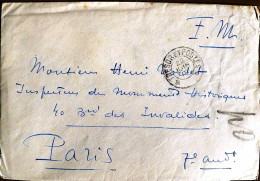 F. M.
TRESOR ET POSTES
Monsieur Henri
Inspecteur des Monuments Historiques
40 Bvd des Invalides
Paris 7e arrdt